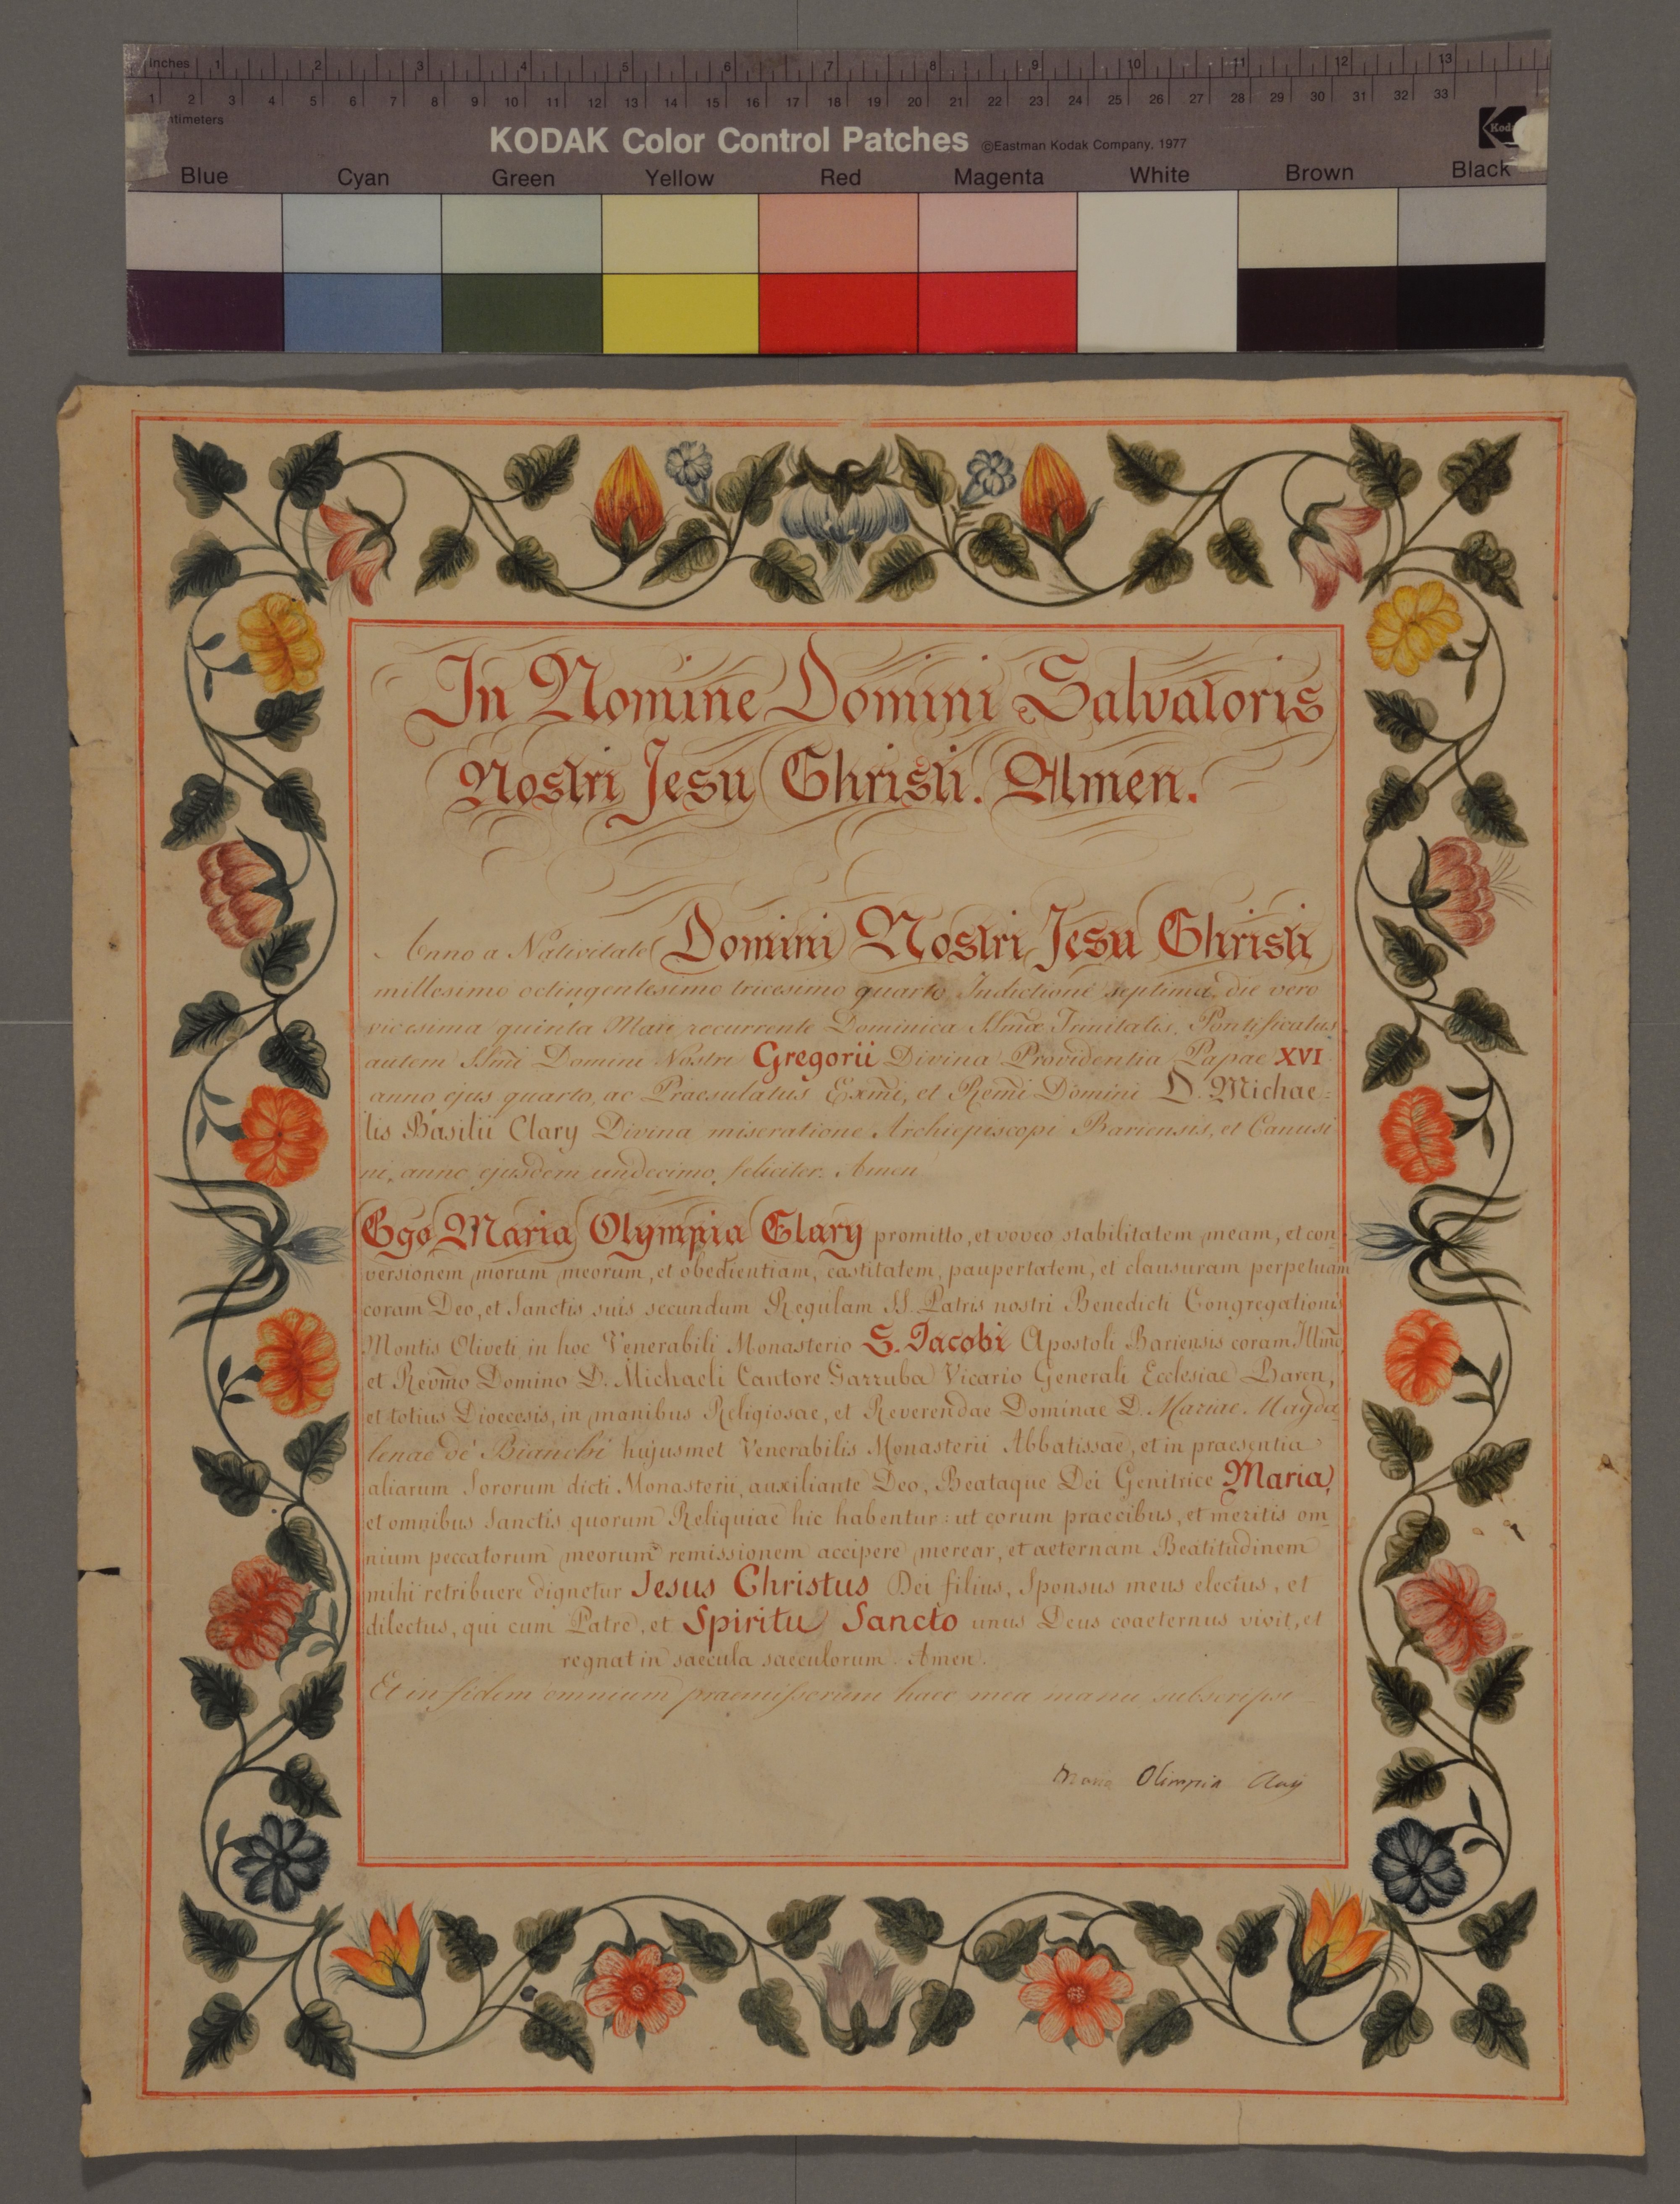 inches 1 2 3 4 5 6 7 8 9 10 11 12 13
1 2 3 4 5 6 7 8 9 10 11 12 13 14 15 16 17 18 19 20 21 22 23 24 25 26 27 28 29 30 31 32 33
ntimeters
KODAK Color Control Patches ©Eastman Kodak Company, 1977
Kod
Blue Cyan Green Yellow Red Magenta White Brown Black
In Nomine Domini Salvatoris
Nostri Jesu Christi. Amen.
Anno a Nativitate Domini Nostri Jesu Christi
millesimo octingentesimo tricesimo quarto, Indictione septima, die vero
vicesima quinta Maii recurrente Dominica SSmæ Trinitatis, Pontificatus
autem SSmi Domini Nostri Gregorii Divina Providentia Papae XVI
anno ejus quarto, ac Praesulatus Exmi, et Remi Domini D. Michae=
lis Basilii Clary Divina miseratione Archiepiscopi Bariensis, et Canusi
ni, anno ejusdem undecimo, feliciter. Amen
Ego Maria Olympia Clary promitto, et voveo stabilitatem meam, et con
versionem morum meorum, et obedientiam, castitatem, paupertatem, et clausuram perpetuam
coram Deo, et Sanctis suis secundum Regulam SS. Patris nostri Benedicti Congregationis
Montis Oliveti in hoc Venerabili Monasterio S. Jacobi Apostoli Bariensis coram Illmo
et Revmo Domino D. Michaeli Cantore Garruba Vicario Generali Ecclesiae Baren,
et totius Dioecesis, in manibus Religiosae, et Reverendae Dominae D. Mariae Magda
lenae de' Bianchi hujusmet Venerabilis Monasterii Abbatissae, et in praesentia
aliarum Sororum dicti Monasterii, auxiliante Deo, Beataque Dei Genitrice Maria,
et omnibus Sanctis quorum Reliquiae hic habentur: ut eorum praecibus, et meritis om
nium peccatorum meorum remissionem accipere merear, et aeternam Beatitudinem
mihi retribuere dignetur Jesus Christus Dei filius, Sponsus meus electus, et
dilectus, qui cum Patre, et Spiritu Sancto unus Deus coaeternus vivit, et
regnat in saecula saeculorum. Amen.
Et in fidem omnium praemissorum haec mea manu subscripsi
Maria Olimpia Clary